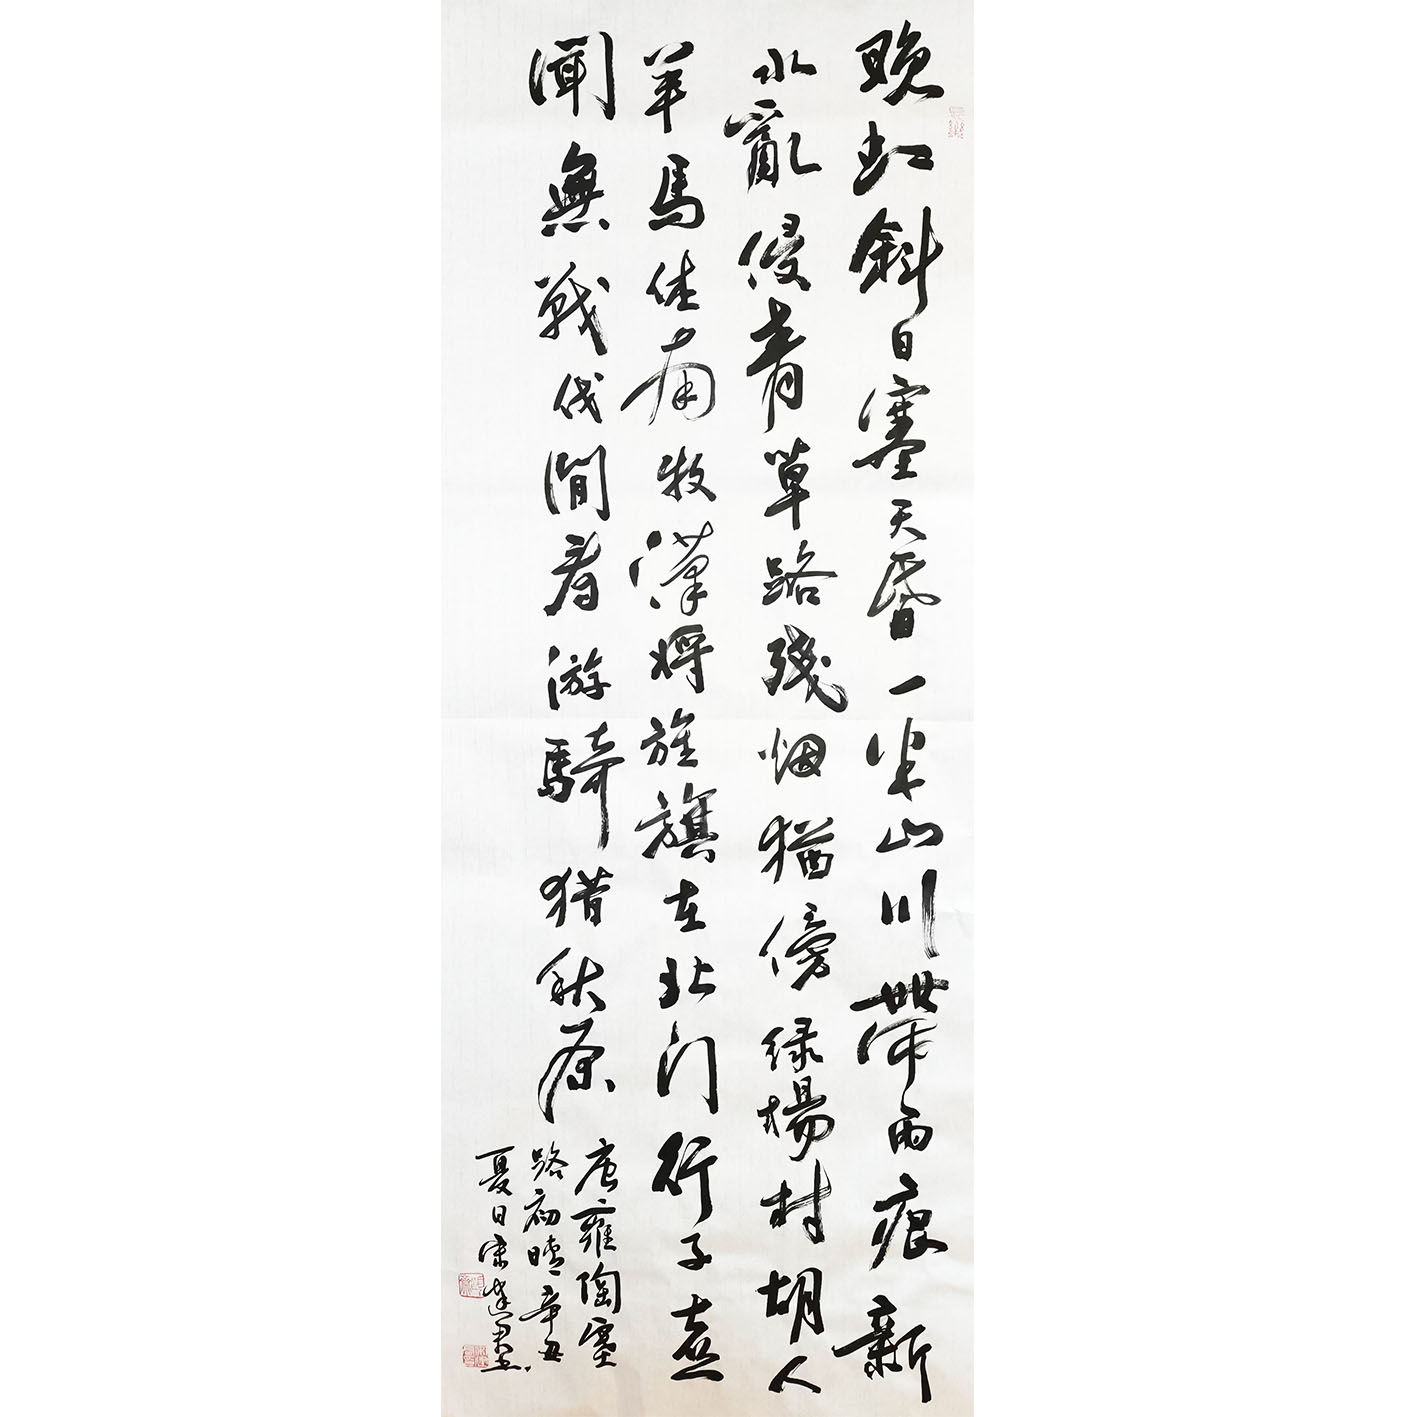 晚虹斜日塞天昏一半山川帶雨痕新
水亂侵青草路殘烟猶傍绿楊村胡人
羊馬休南牧漢将旌旗在北门行子喜
聞無戰伐閒看游騎猎秋原
唐雍陶塞
路初晴辛丑
夏日宋书